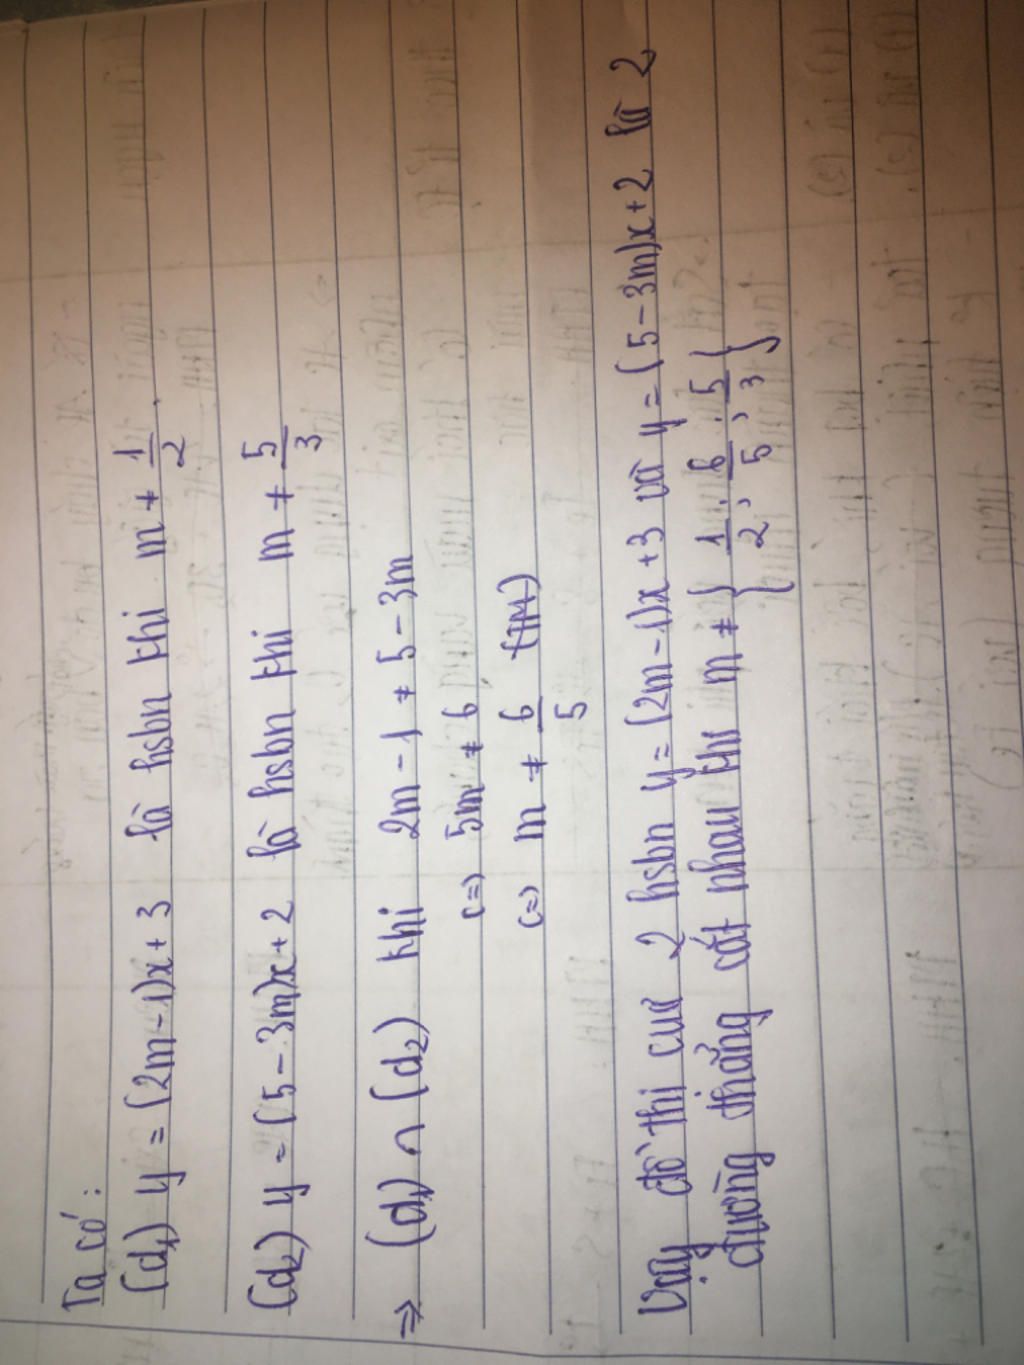 Ta có:
(d₁) y = (2m-1)x + 3 là hsbn khi m ≠ 1/2.
(d₂) y = (5-3m)x + 2 là hsbn khi m ≠ 5/3
⇒ (d₁) ∩ (d₂) khi 2m-1 ≠ 5-3m
<=> 5m ≠ 6
<=> m ≠ 6/5 (TM)
Vậy đồ thị của 2 hsbn y = (2m-1)x + 3 và y = (5-3m)x + 2 là 2
đường thẳng cắt nhau khi m ≠ {1/2; 6/5; 5/3}